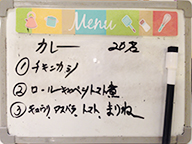 Menu
カレー 20名
① チキンカツ
② ロールキャベツトマト煮
③ キュウリ、アスパラ、トマト まりね